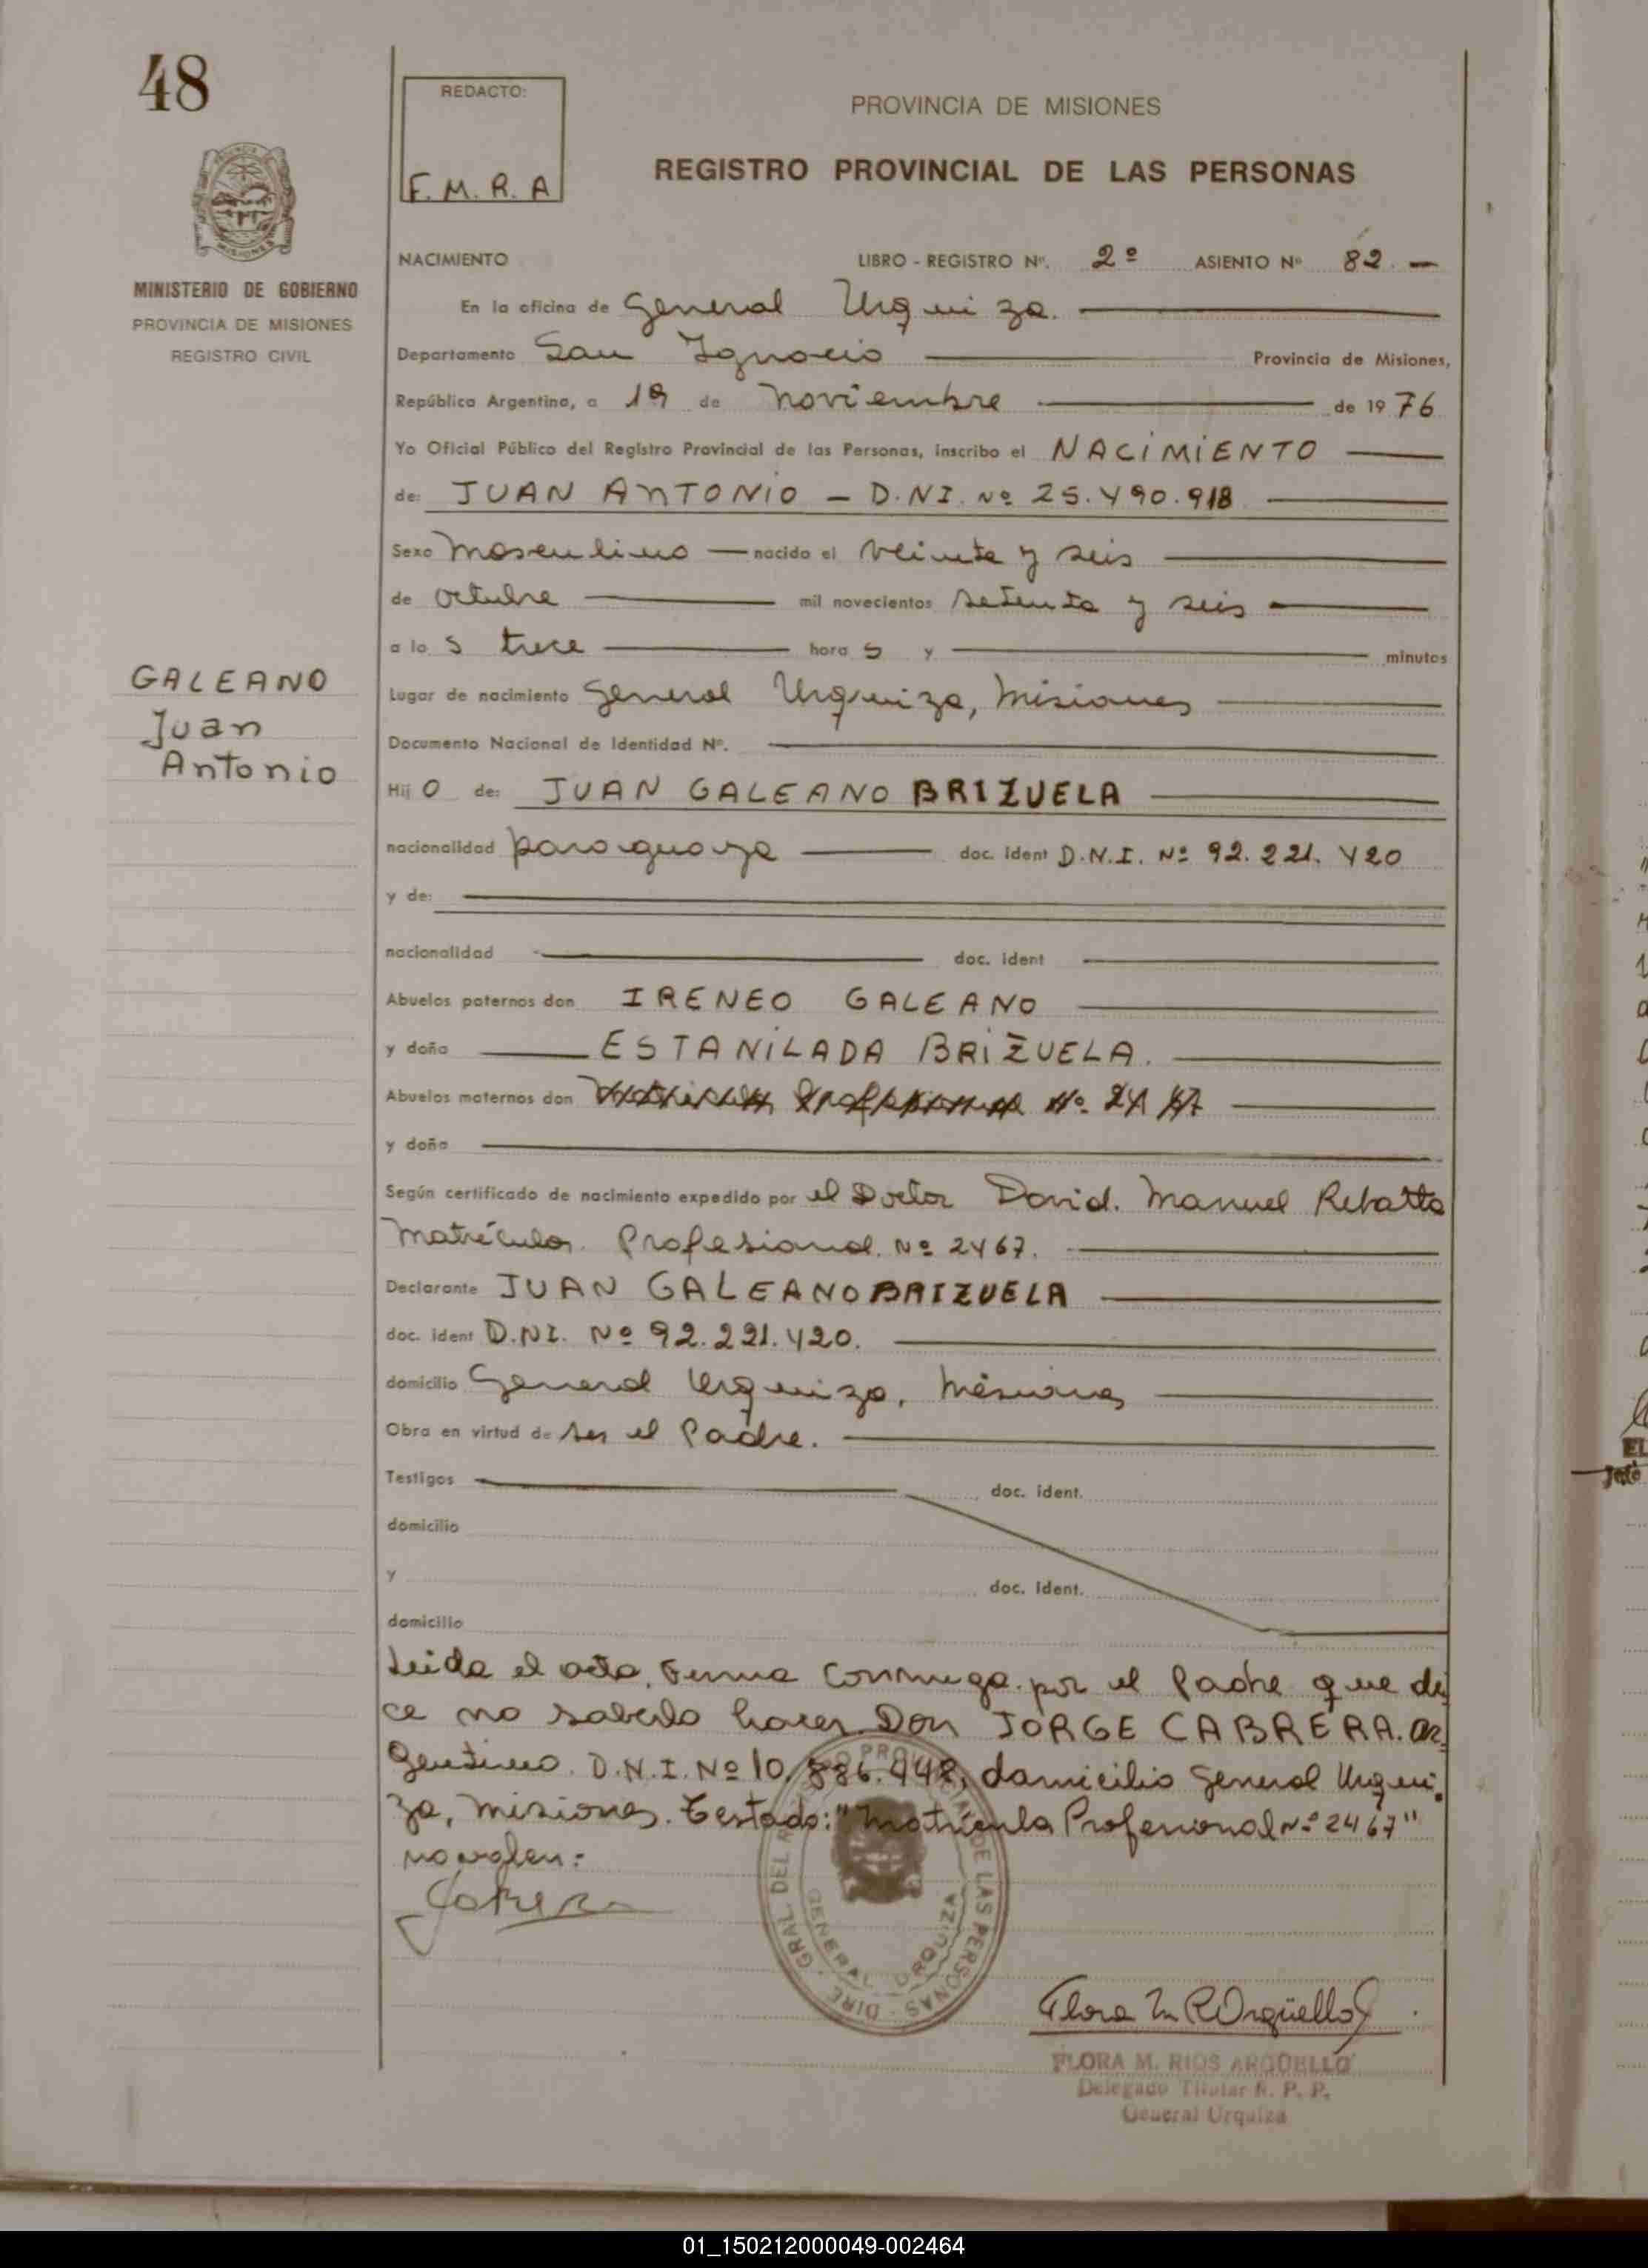 48
REDACTO:
F. M. R. A
PROVINCIA DE MISIONES
REGISTRO PROVINCIAL DE LAS PERSONAS
MINISTERIO DE GOBIERNO
PROVINCIA DE MISIONES
REGISTRO CIVIL
NACIMIENTO LIBRO - REGISTRO Nº. 2º ASIENTO Nº 82. —
En la oficina de General Urquiza.
Departamento San Ignacio Provincia de Misiones,
República Argentina, a 19 de noviembre de 1976
Yo Oficial Público del Registro Provincial de las Personas, inscribo el NACIMIENTO
de: JUAN ANTONIO — D.NI. Nº 25.490.918
Sexo masculino — nacido el veinte y seis
de octubre mil novecientos setenta y seis
a las trece horas y minutos
GALEANO
Juan
Antonio
Lugar de nacimiento General Urquiza, Misiones
Documento Nacional de Identidad Nº.
Hijo de: JUAN GALEANO BRIZUELA
nacionalidad paraguaya doc. ident D.N.I. Nº 92.221.420
y de:
nacionalidad doc. ident
Abuelos paternos don IRENEO GALEANO
y doña ESTANILADA BRIZUELA.
Abuelos maternos don Matrícula Profesional Nº 2467
y doña
Según certificado de nacimiento expedido por el Doctor David. Manuel Rebatta
Matrícula. Profesional. Nº 2467.
Declarante JUAN GALEANO BRIZUELA
doc. ident D.NI. Nº 92.221.420.
domicilio General Urquiza, Misiones
Obra en virtud de ser el Padre.
Testigos doc. ident.
domicilio
y doc. ident.
domicilio
Leida el acta, Firma conmigo. por el Padre que di
ce no saberlo hacer. Don JORGE CABRERA. ar
gentino. D.N.I. Nº 10.886.948, domicilio General Urqui
za, Misiones. Testado: "Matrícula Profesional Nº 2467"
no valen:
DIRE. GRAL. DEL PROVINCIAL DE LAS PERSONAS
GENERAL URQUIZA
Flora M R Argüello
FLORA M. RIOS ARGÜELLO
Delegado Titular R. P. P.
General Urquiza
01_150212000049-002464